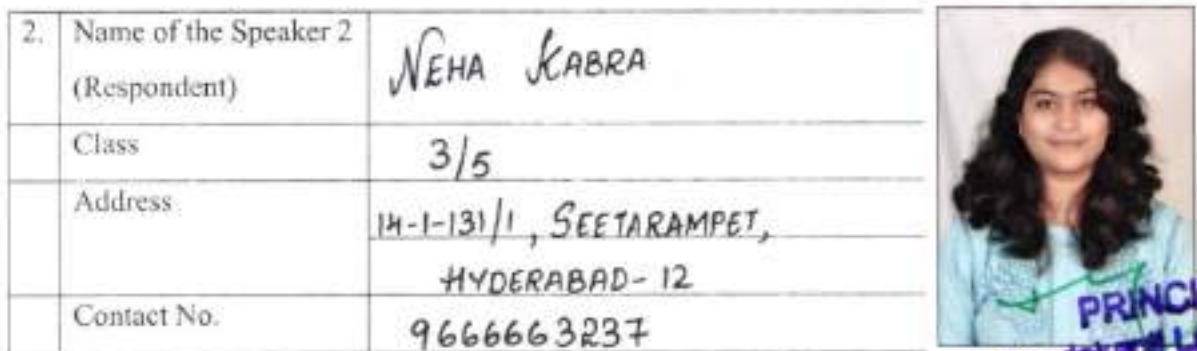 2. Name of the Speaker 2
(Respondent)
NEHA KABRA
Class
3/5
Address
14-1-131/1, SEETARAMPET,
HYDERABAD- 12
Contact No.
9666663237
PRINCI